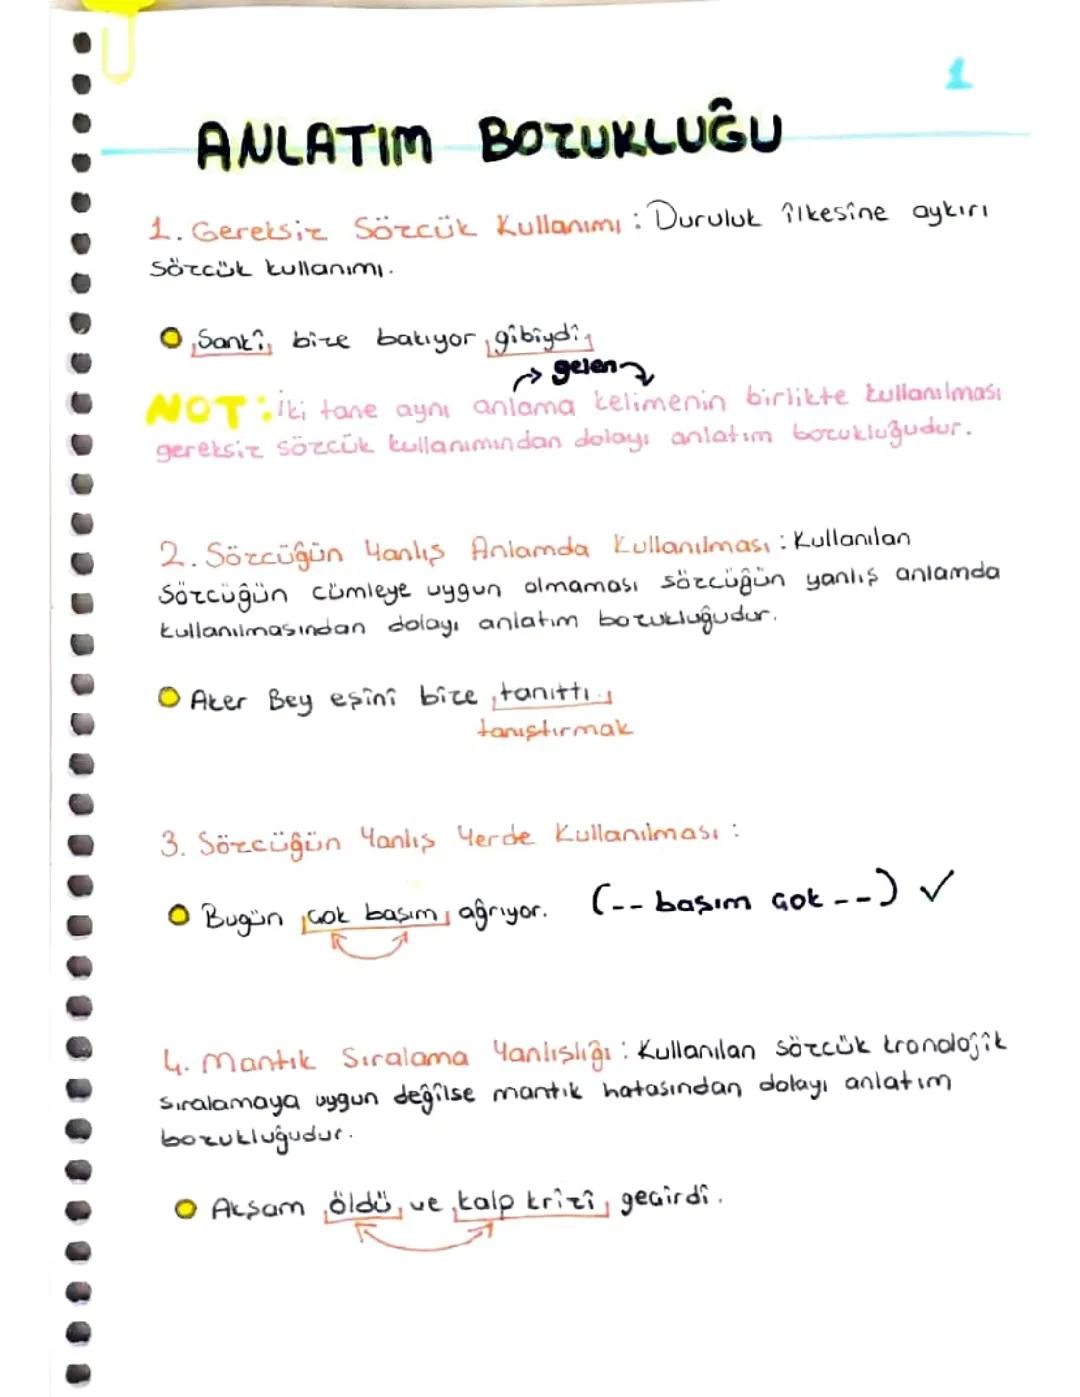 1
ANLATIM BOZUKLUĞU
1. Gereksiz Sözcük Kullanımı : Duruluk ilkesine aykırı
sözcük kullanımı.
Sanki bize bakıyor gibiydi
gelen
NOT: İki tane aynı anlama kelimenin birlikte kullanılması
gereksiz sözcük kullanımından dolayı anlatım bozukluğudur.
2. Sözcüğün Yanlış Anlamda Kullanılması : Kullanılan
sözcüğün cümleye uygun olmaması sözcüğün yanlış anlamda
kullanılmasından dolayı anlatım bozukluğudur.
Aker Bey eşini bize tanıttı.
tanıştırmak
3. Sözcüğün Yanlış Yerde Kullanılması :
Bugün çok başım ağrıyor. (-- başım çok --) ✓
4. Mantık Sıralama Yanlışlığı : Kullanılan sözcük kronolojik
sıralamaya uygun değilse mantık hatasından dolayı anlatım
bozukluğudur.
Akşam öldü ve kalp krizi geçirdi.